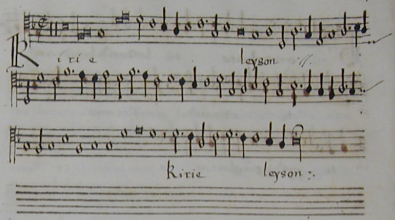 Kirie leyson
Kirie leyson